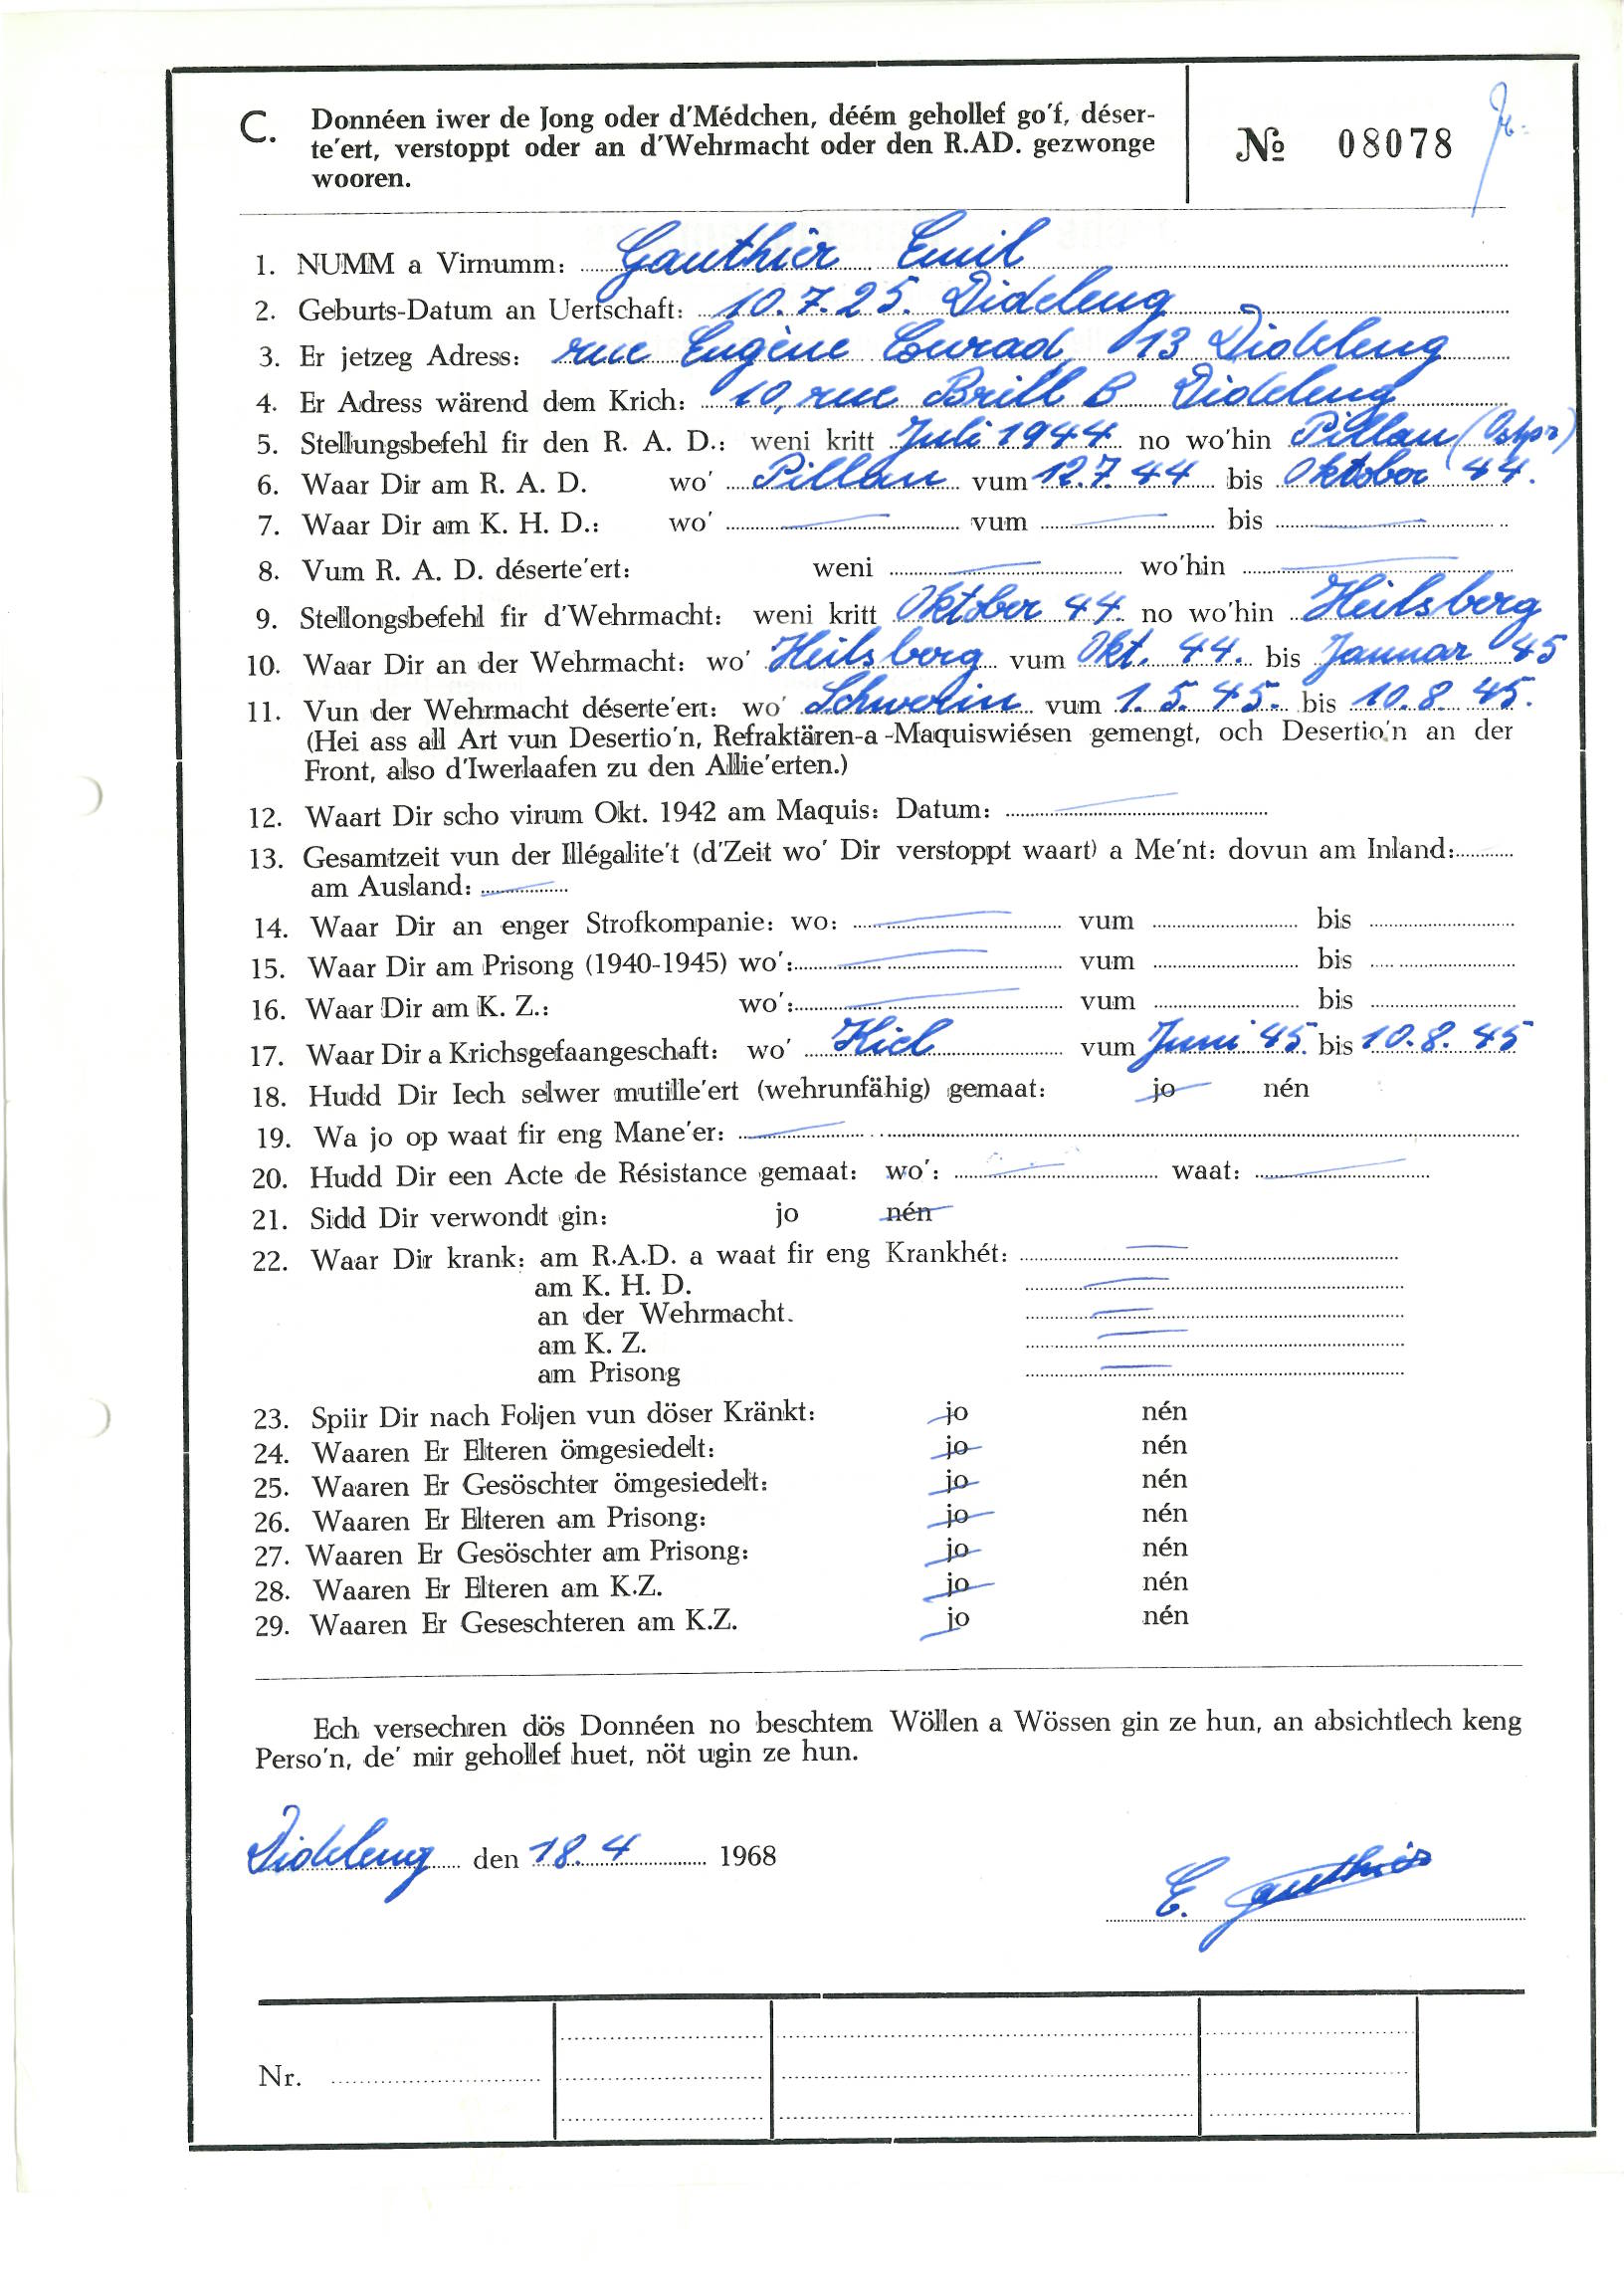 C. Donnéen iwer de Jong oder d'Médchen, déém gehollef go'f, déser-
te'ert, verstoppt oder an d'Wehrmacht oder den R.AD. gezwonge
wooren.
№ 08078
1. NUMM a Virnumm: Gauthier Emil
2. Geburts-Datum an Uertschaft: 10.7.25. Dideleng
3. Er jetzeg Adress: rue Eugène Conrad, 13 Dideleng
4. Er Adress wärend dem Krich: 10, rue Brill B Dideleng
5. Stellungsbefehl fir den R. A. D.: weni kritt Juli 1944 no wo'hin Pillau (Ostpr)
6. Waar Dir am R. A. D. wo' Pillau vum 12.7.44 bis Oktober 44.
7. Waar Dir am K. H. D.: wo' — vum — bis —
8. Vum R. A. D. déserte'ert: weni — wo'hin —
9. Stellongsbefehl fir d'Wehrmacht: weni kritt Oktober 44. no wo'hin Heilsberg
10. Waar Dir an der Wehrmacht: wo' Heilsberg vum Okt. 44. bis Januar 45
11. Vun der Wehrmacht déserte'ert: wo' Schwerin vum 1.5.45. bis 10.8.45.
(Hei ass all Art vun Desertio'n, Refraktären-a-Maquiswiésen gemengt, och Desertio'n an der
Front, also d'Iwerlaafen zu den Allie'erten.)
12. Waart Dir scho virum Okt. 1942 am Maquis: Datum: —
13. Gesamtzeit vun der Illégalite't (d'Zeit wo' Dir verstoppt waart) a Me'nt: dovun am Inland:
am Ausland: —
14. Waar Dir an enger Strofkompanie: wo: — vum bis
15. Waar Dir am Prisong (1940-1945) wo': — vum bis
16. Waar Dir am K. Z.: wo': — vum bis
17. Waar Dir a Krichsgefaangeschaft: wo' Kiel vum Juni 45. bis 10.8.45
18. Hudd Dir Iech selwer mutille'ert (wehrunfähig) gemaat: jo nén
19. Wa jo op waat fir eng Mane'er: —
20. Hudd Dir een Acte de Résistance gemaat: wo': — waat: —
21. Sidd Dir verwondt gin: jo nén
22. Waar Dir krank: am R.A.D. a waat fir eng Krankhét: —
am K. H. D. —
an der Wehrmacht. —
am K. Z. —
am Prisong —
23. Spiir Dir nach Foljen vun döser Kränkt: jo nén
24. Waaren Er Elteren ömgesiedelt: jo nén
25. Waaren Er Gesöschter ömgesiedelt: jo nén
26. Waaren Er Elteren am Prisong: jo nén
27. Waaren Er Gesöschter am Prisong: jo nén
28. Waaren Er Elteren am K.Z. jo nén
29. Waaren Er Geseschteren am K.Z. jo nén
Ech versechren dös Donnéen no beschtem Wöllen a Wössen gin ze hun, an absichtlech keng
Perso'n, de' mir gehollef huet, nöt ugin ze hun.
Dideleng den 18.4 1968
E. Gauthier
Nr.